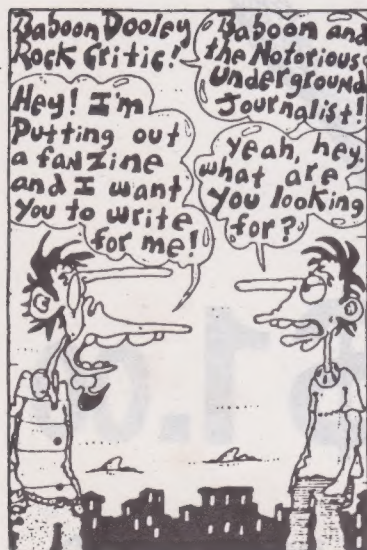 Baboon Dooley
Rock Critic!
Baboon and
the Notorious
Underground
Journalist!
Hey! I'm
Putting out
a fanzine
and I want
you to write
for me!
yeah, hey.
what are
you looking
for?